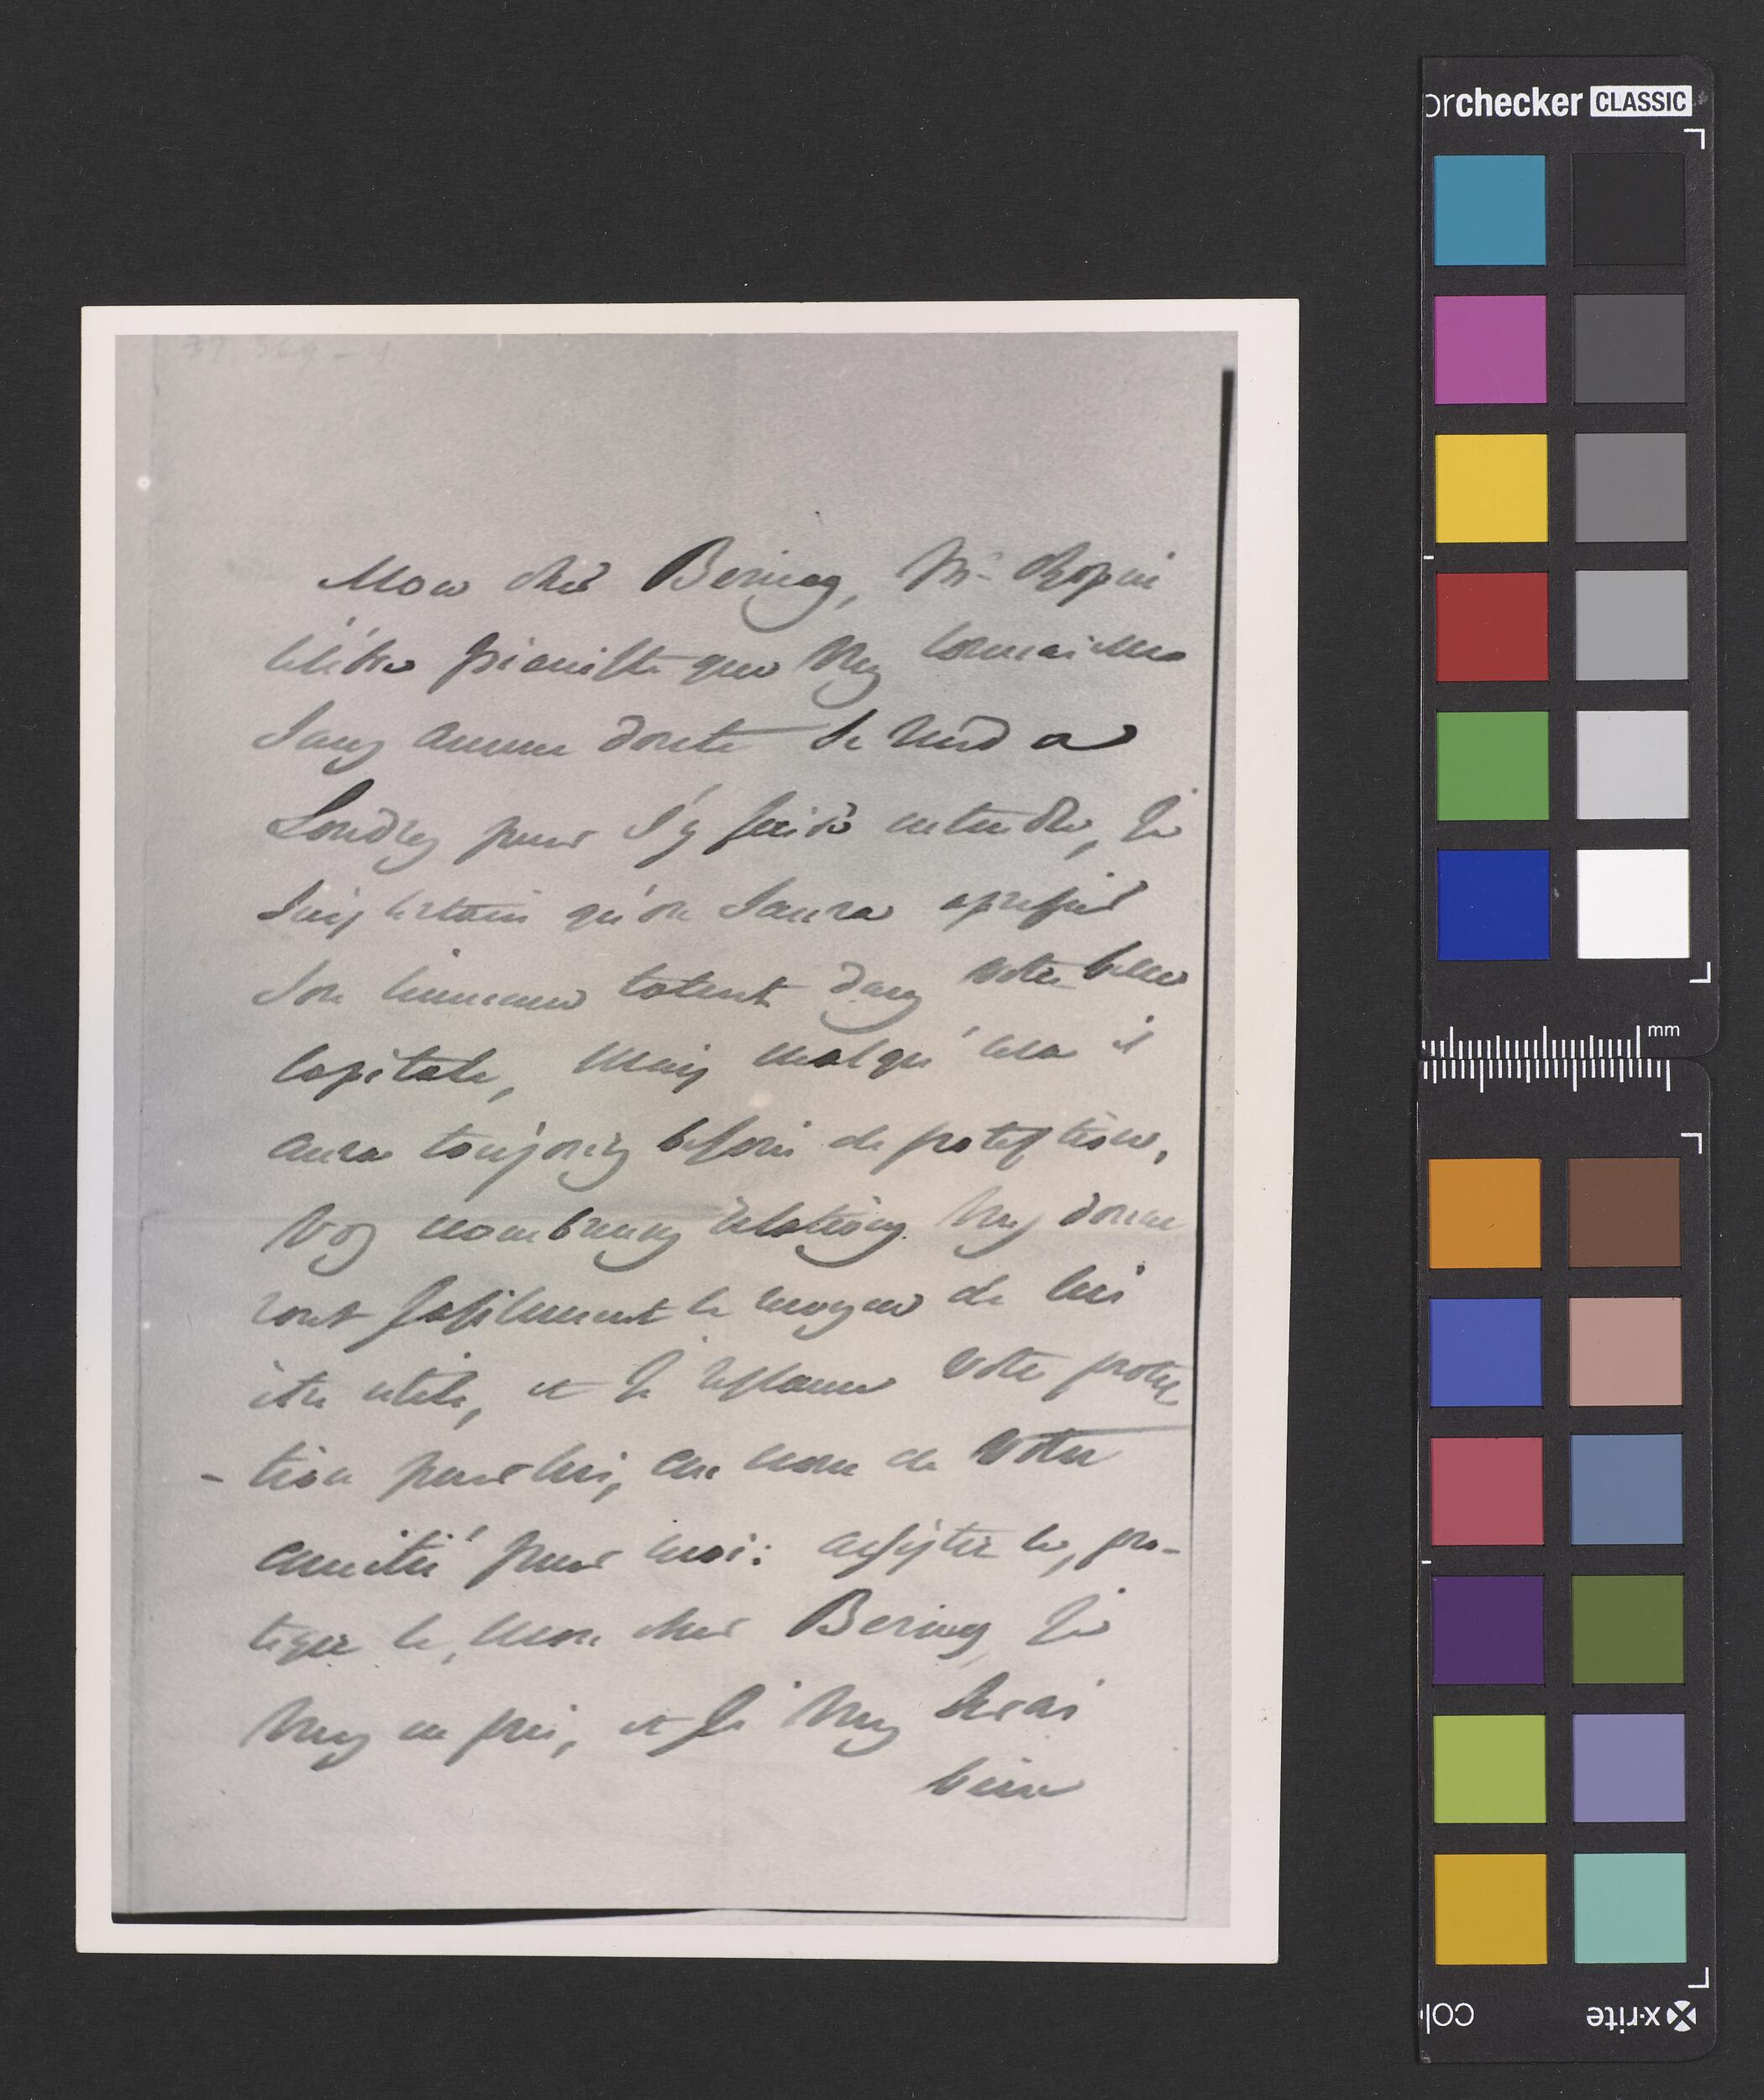 37.369 - 1
Mon cher Bening, Mr Chopin
célébre pianiste que vous connaissez
sans aucun doute se rend a
Londres pour s'y faire entendre, je
suis certain qu'on saura apressier
son talent dans votre belle
capitale, mais malgré cela il
aura toujours besoin de protection,
vos nombreuses relations vous donne
ront fasilement le moyen de lui
être utile, et je reclame votre protec
-tion pour lui, au nom de votre
amitié pour moi: assister le, pro-
teger le, mon cher Bening, je
vous en prie, et je vous serai
bien
orchecker CLASSIC
mm
x-rite
colo